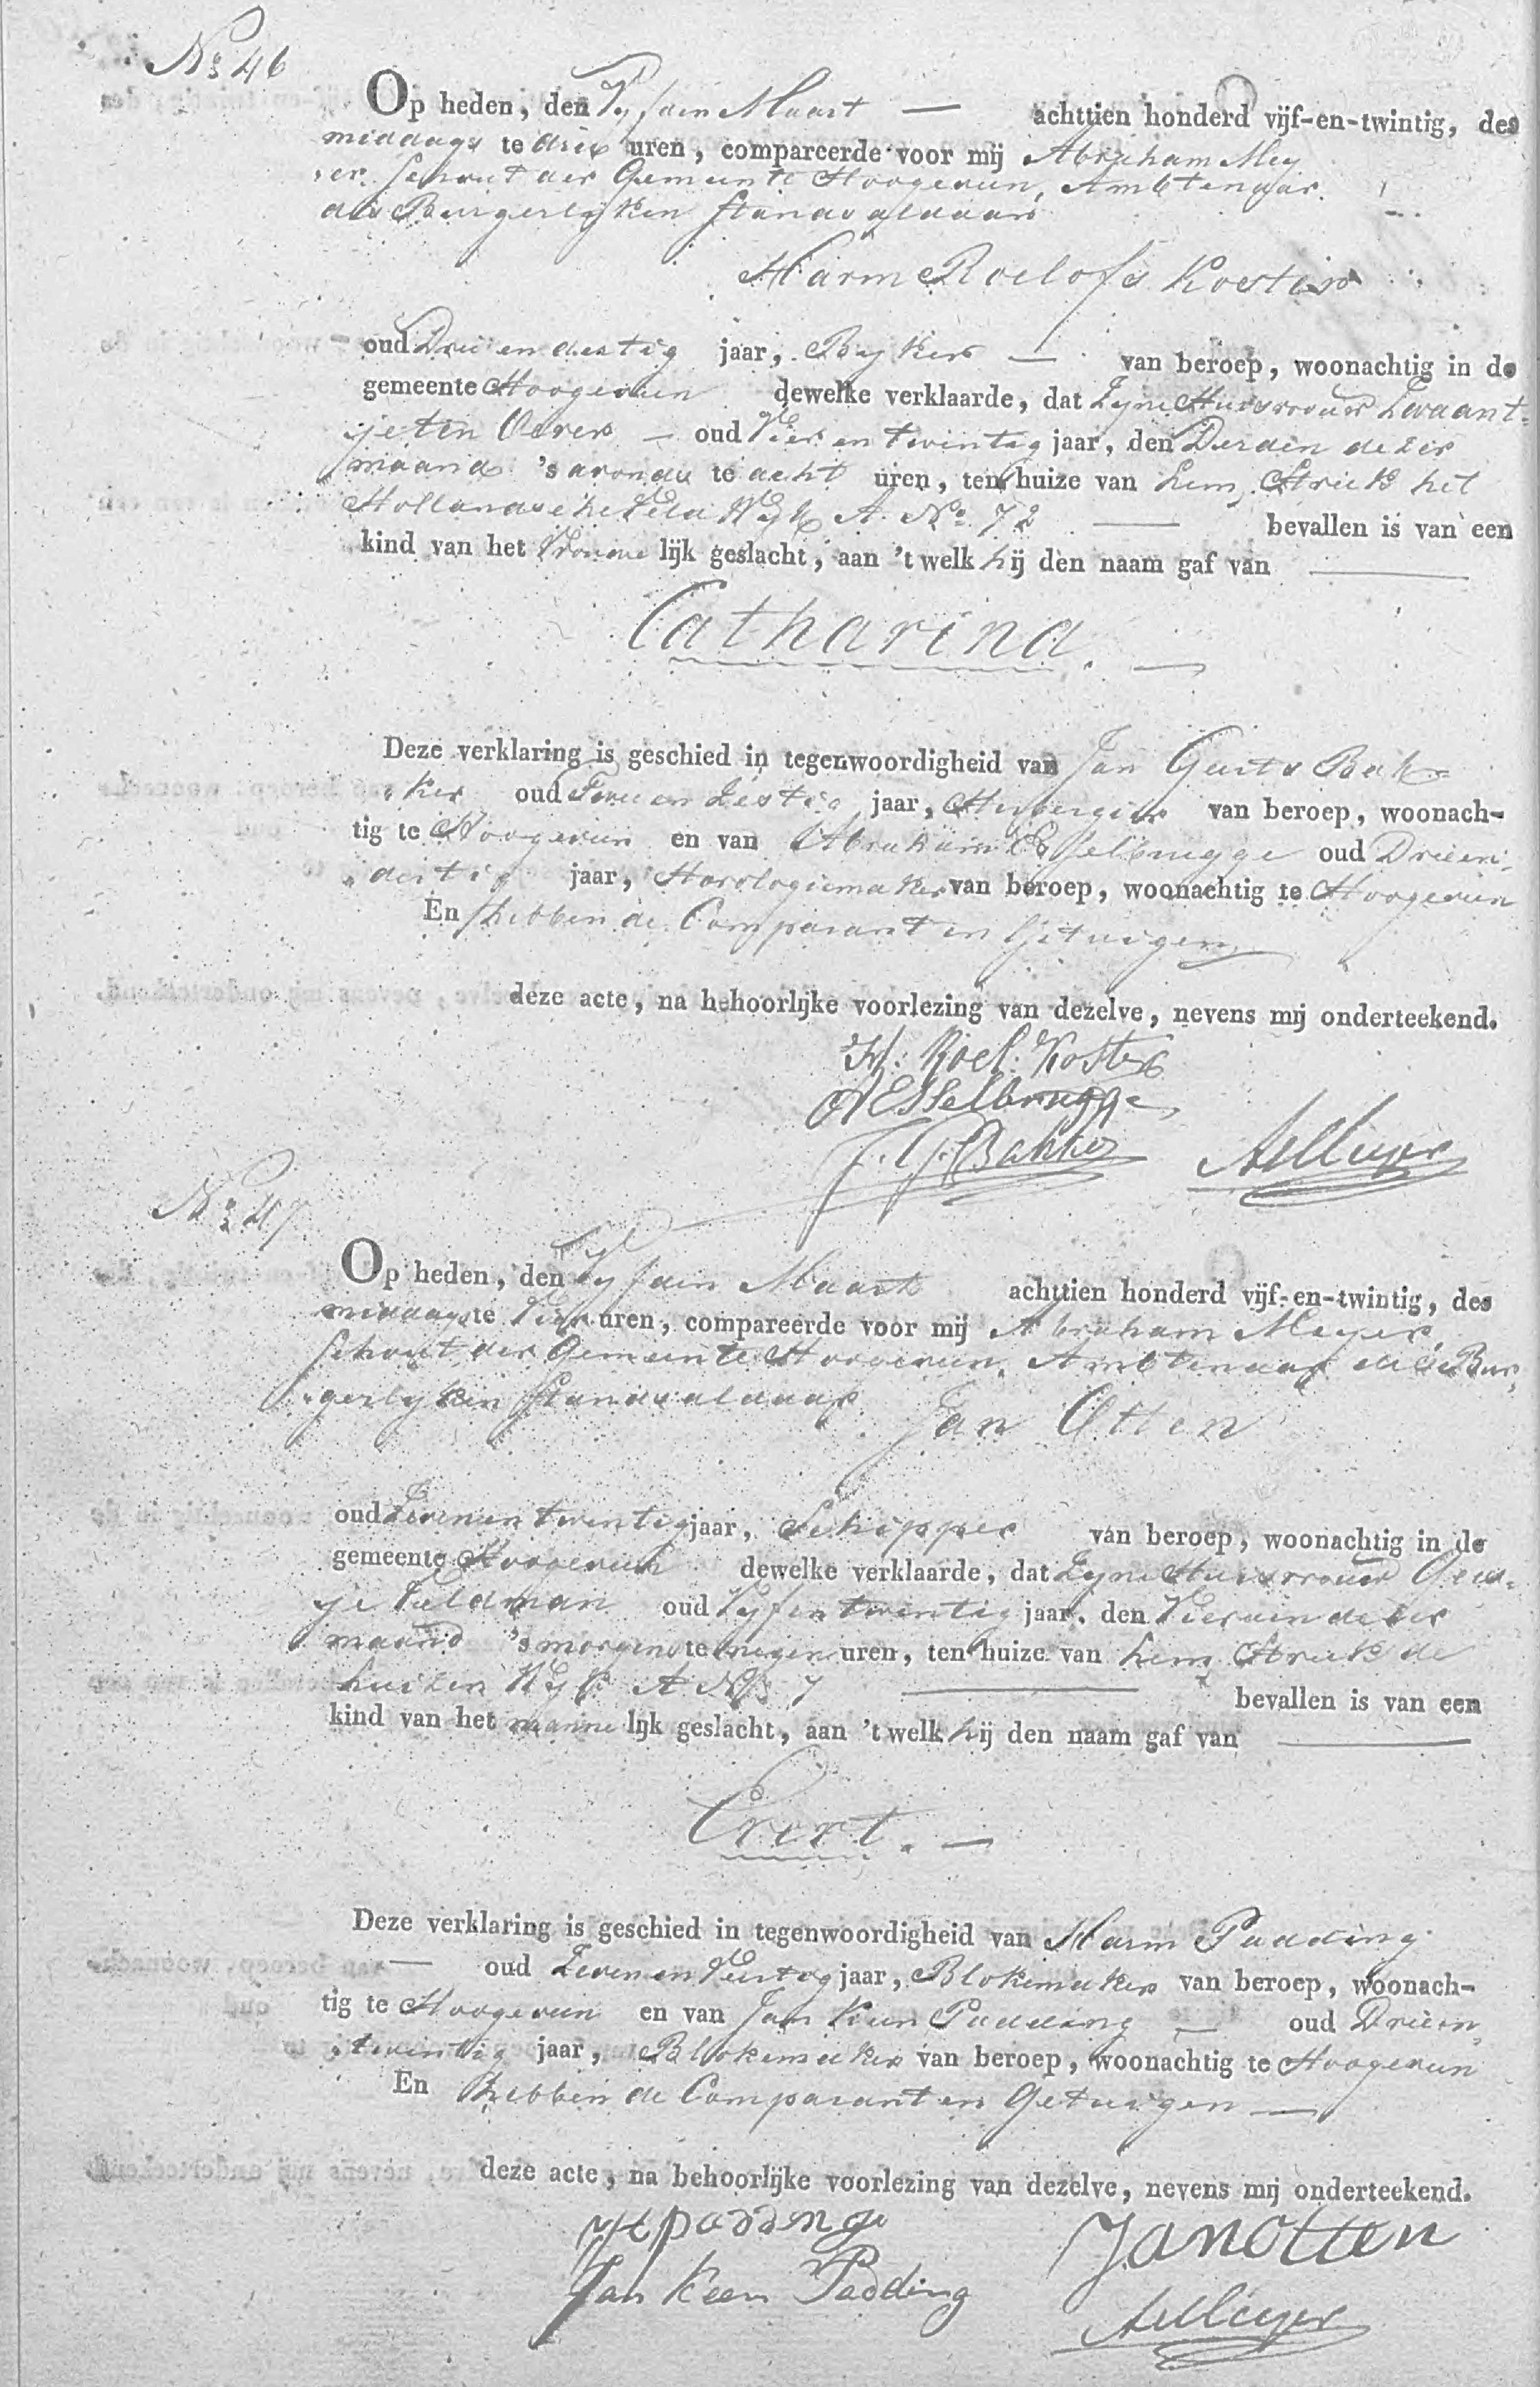 No 46
Op heden, den Vyfden Maart — achttien honderd vijf-en-twintig, des
middags te drie uren, compareerde voor mij Abraham Mey
er, Schout der Gemeente Hoogeveen, Ambtenaar
des Burgerlyken Stands aldaar
Harm Roelofs Koster
oud Drie en dertig jaar, — van beroep, woonachtig in de
gemeente Hoogeveen dewelke verklaarde, dat Zyne Huisvrouw Zwaant-
je ten Oever — oud Vier en twintig jaar, den Derden dezer
maand 's avonds te acht uren, ten huize van hem, Streek het
Hollandsche Veld Wyk A. No 72 — bevallen is van een
kind van het Vrouwe lijk geslacht, aan 't welk hij den naam gaf van —
Catharina. —
Deze verklaring is geschied in tegenwoordigheid van Jan Geerts Bak-
ker oud Twee en Zestig jaar, Herbergier van beroep, woonach-
tig te Hoogeveen en van Abraham Esselbrugge oud Drieen-
dertig jaar, Horologiemaker van beroep, woonachtig te Hoogeveen
En hebben de Comparant en Getuigen
deze acte, na behoorlijke voorlezing van dezelve, nevens mij onderteekend.
H: Roel: Koster
A Esselbrugge
J. G. Bakker AMeyer
No 47
Op heden, den Vyfden Maart achttien honderd vijf-en-twintig, des
middags te Vier uren, compareerde voor mij Abraham Meyer,
Schout der Gemeente Hoogeveen, Ambtenaar des Bur-
gerlyken Stands aldaar Jan Otten
oud Zevenen twintig jaar, Schipper van beroep, woonachtig in de
gemeente Hoogeveen dewelke verklaarde, dat Zyne Huisvrouw
je Veldman oud Vyf en twintig jaar, den Vierden dezer
maand 's morgens te negen uren, ten huize van hem, Streek de
huizen Wyk A No 7 — bevallen is van een
kind van het manne lijk geslacht, aan 't welk hij den naam gaf van —
Evert. —
Deze verklaring is geschied in tegenwoordigheid van Harm Padding
— oud Zeven en Veertig jaar, Blokemaker van beroep, woonach-
tig te Hoogeveen en van Jan Keen Padding — oud Drieen-
twintig jaar, Blokemaker van beroep, woonachtig te Hoogeveen
En hebben de Comparant en Getuigen —
deze acte, na behoorlijke voorlezing van dezelve, nevens mij onderteekend.
H padding Jan Otten
Jan Keen Padding AMeyer